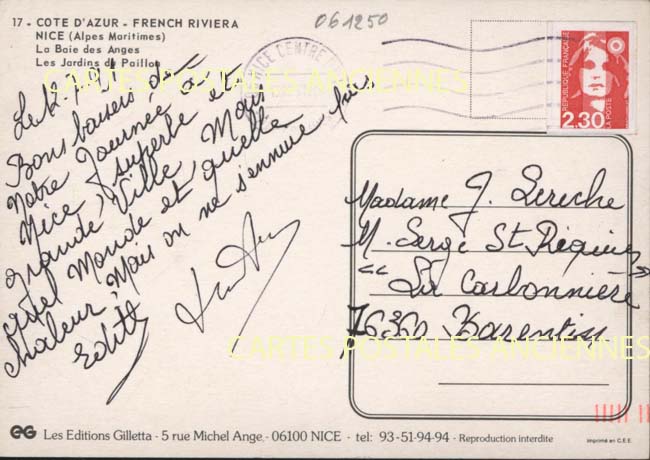 17 - COTE D'AZUR - FRENCH RIVIERA
NICE (Alpes Maritimes)
La Baie des Anges
Les Jardins du Paillon
061250
NICE CENTRE
REPUBLIQUE FRANÇAISE
LA POSTE
2,30
CARTES POSTALES ANCIENNES
Bons baisers de
notre Journée à
Nice, superbe et
grande Ville, Mais
quel Monde et quelle
chaleur, Mais on ne s'ennuie pas
Edith
Madame J. Lereche
M. Serge St Réquier
"La Carbonnière"
76360 Barentin
CARTES POSTALES ANCIENNES
EG Les Editions Gilletta - 5 rue Michel Ange - 06100 NICE - tel: 93-51-94-94 - Reproduction interdite
Imprimé en C.E.E.